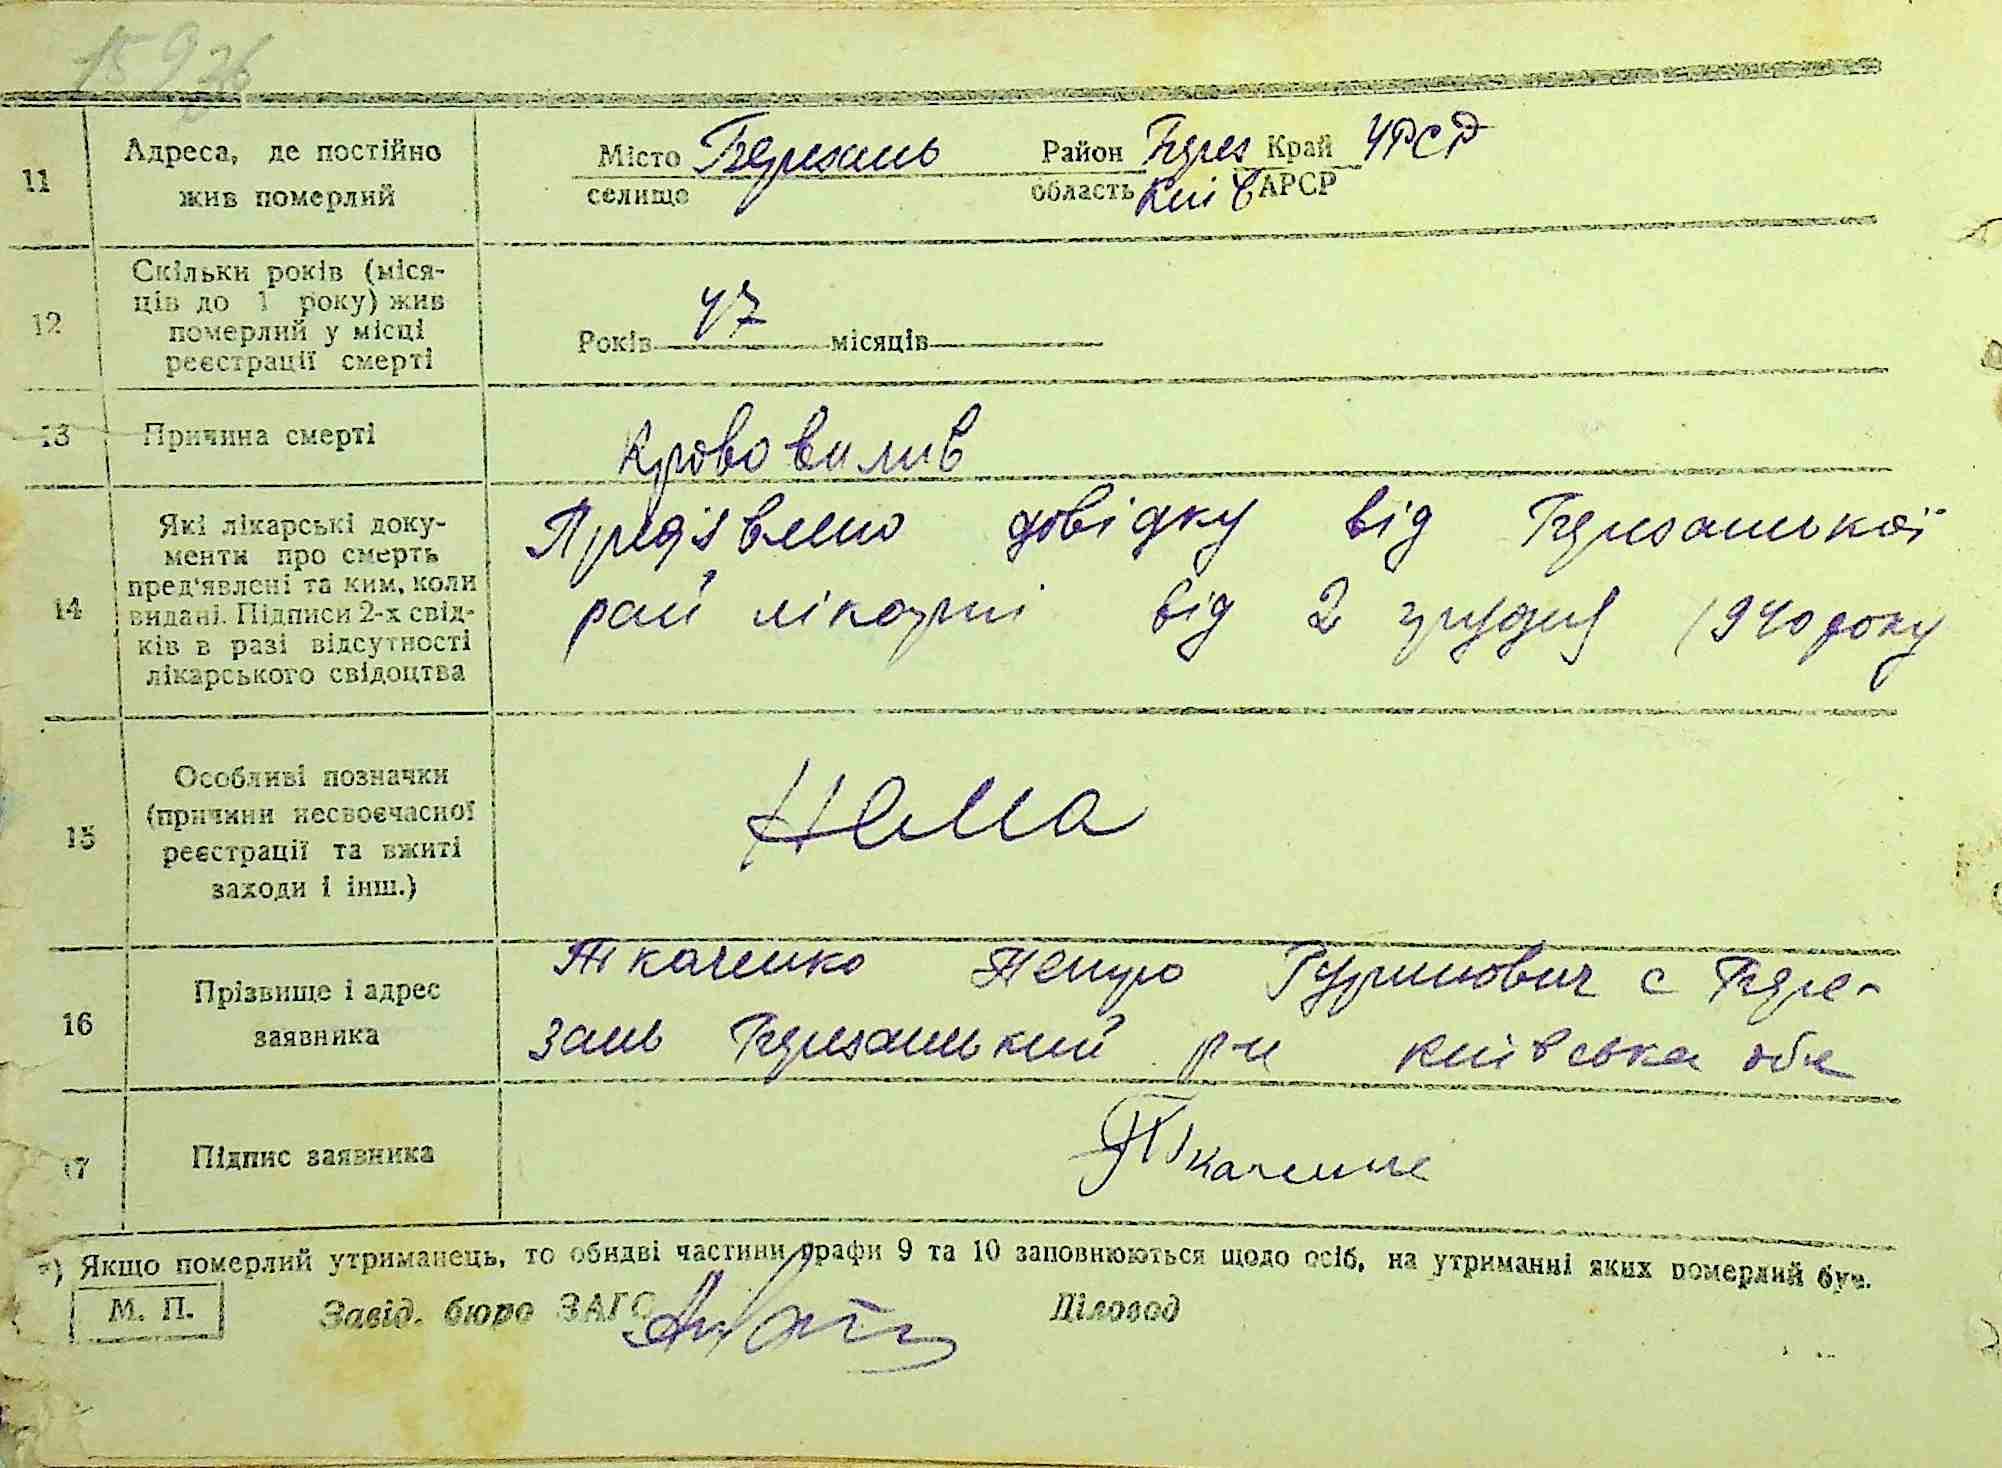 15926
11 Адреса, де постійно жив померлий
Місто селище Березань Район область Берез Київ Край АРСР УРСР
12 Скільки років (міся-
ців до 1 року) жив
померлий у місці
реєстрації смерті
Років 47 місяців
13 Причина смерті Крововилив
14 Які лікарські доку-
менти про смерть
пред'явлені та ким, коли
видані. Підписи 2-х свід-
ків в разі відсутності
лікарського свідоцтва
Предявлено довідку від Березанької
рай лікарні від 2 грудня 1940 року
15 Особливі позначки
(причини несвоєчасної
реєстрації та вжиті
заходи і інш.)
Нема
16 Прізвище і адрес
заявника
Ткаченко Петро Гуринович с Бере-
зань Березанький р-н київська обл
17 Підпис заявника Ткаченко
*) Якщо померлий утриманець, то обидві частини графи 9 та 10 заповнюються щодо осіб, на утриманні яких померлий був.
М. П. Завід. бюро ЗАГС Діловод